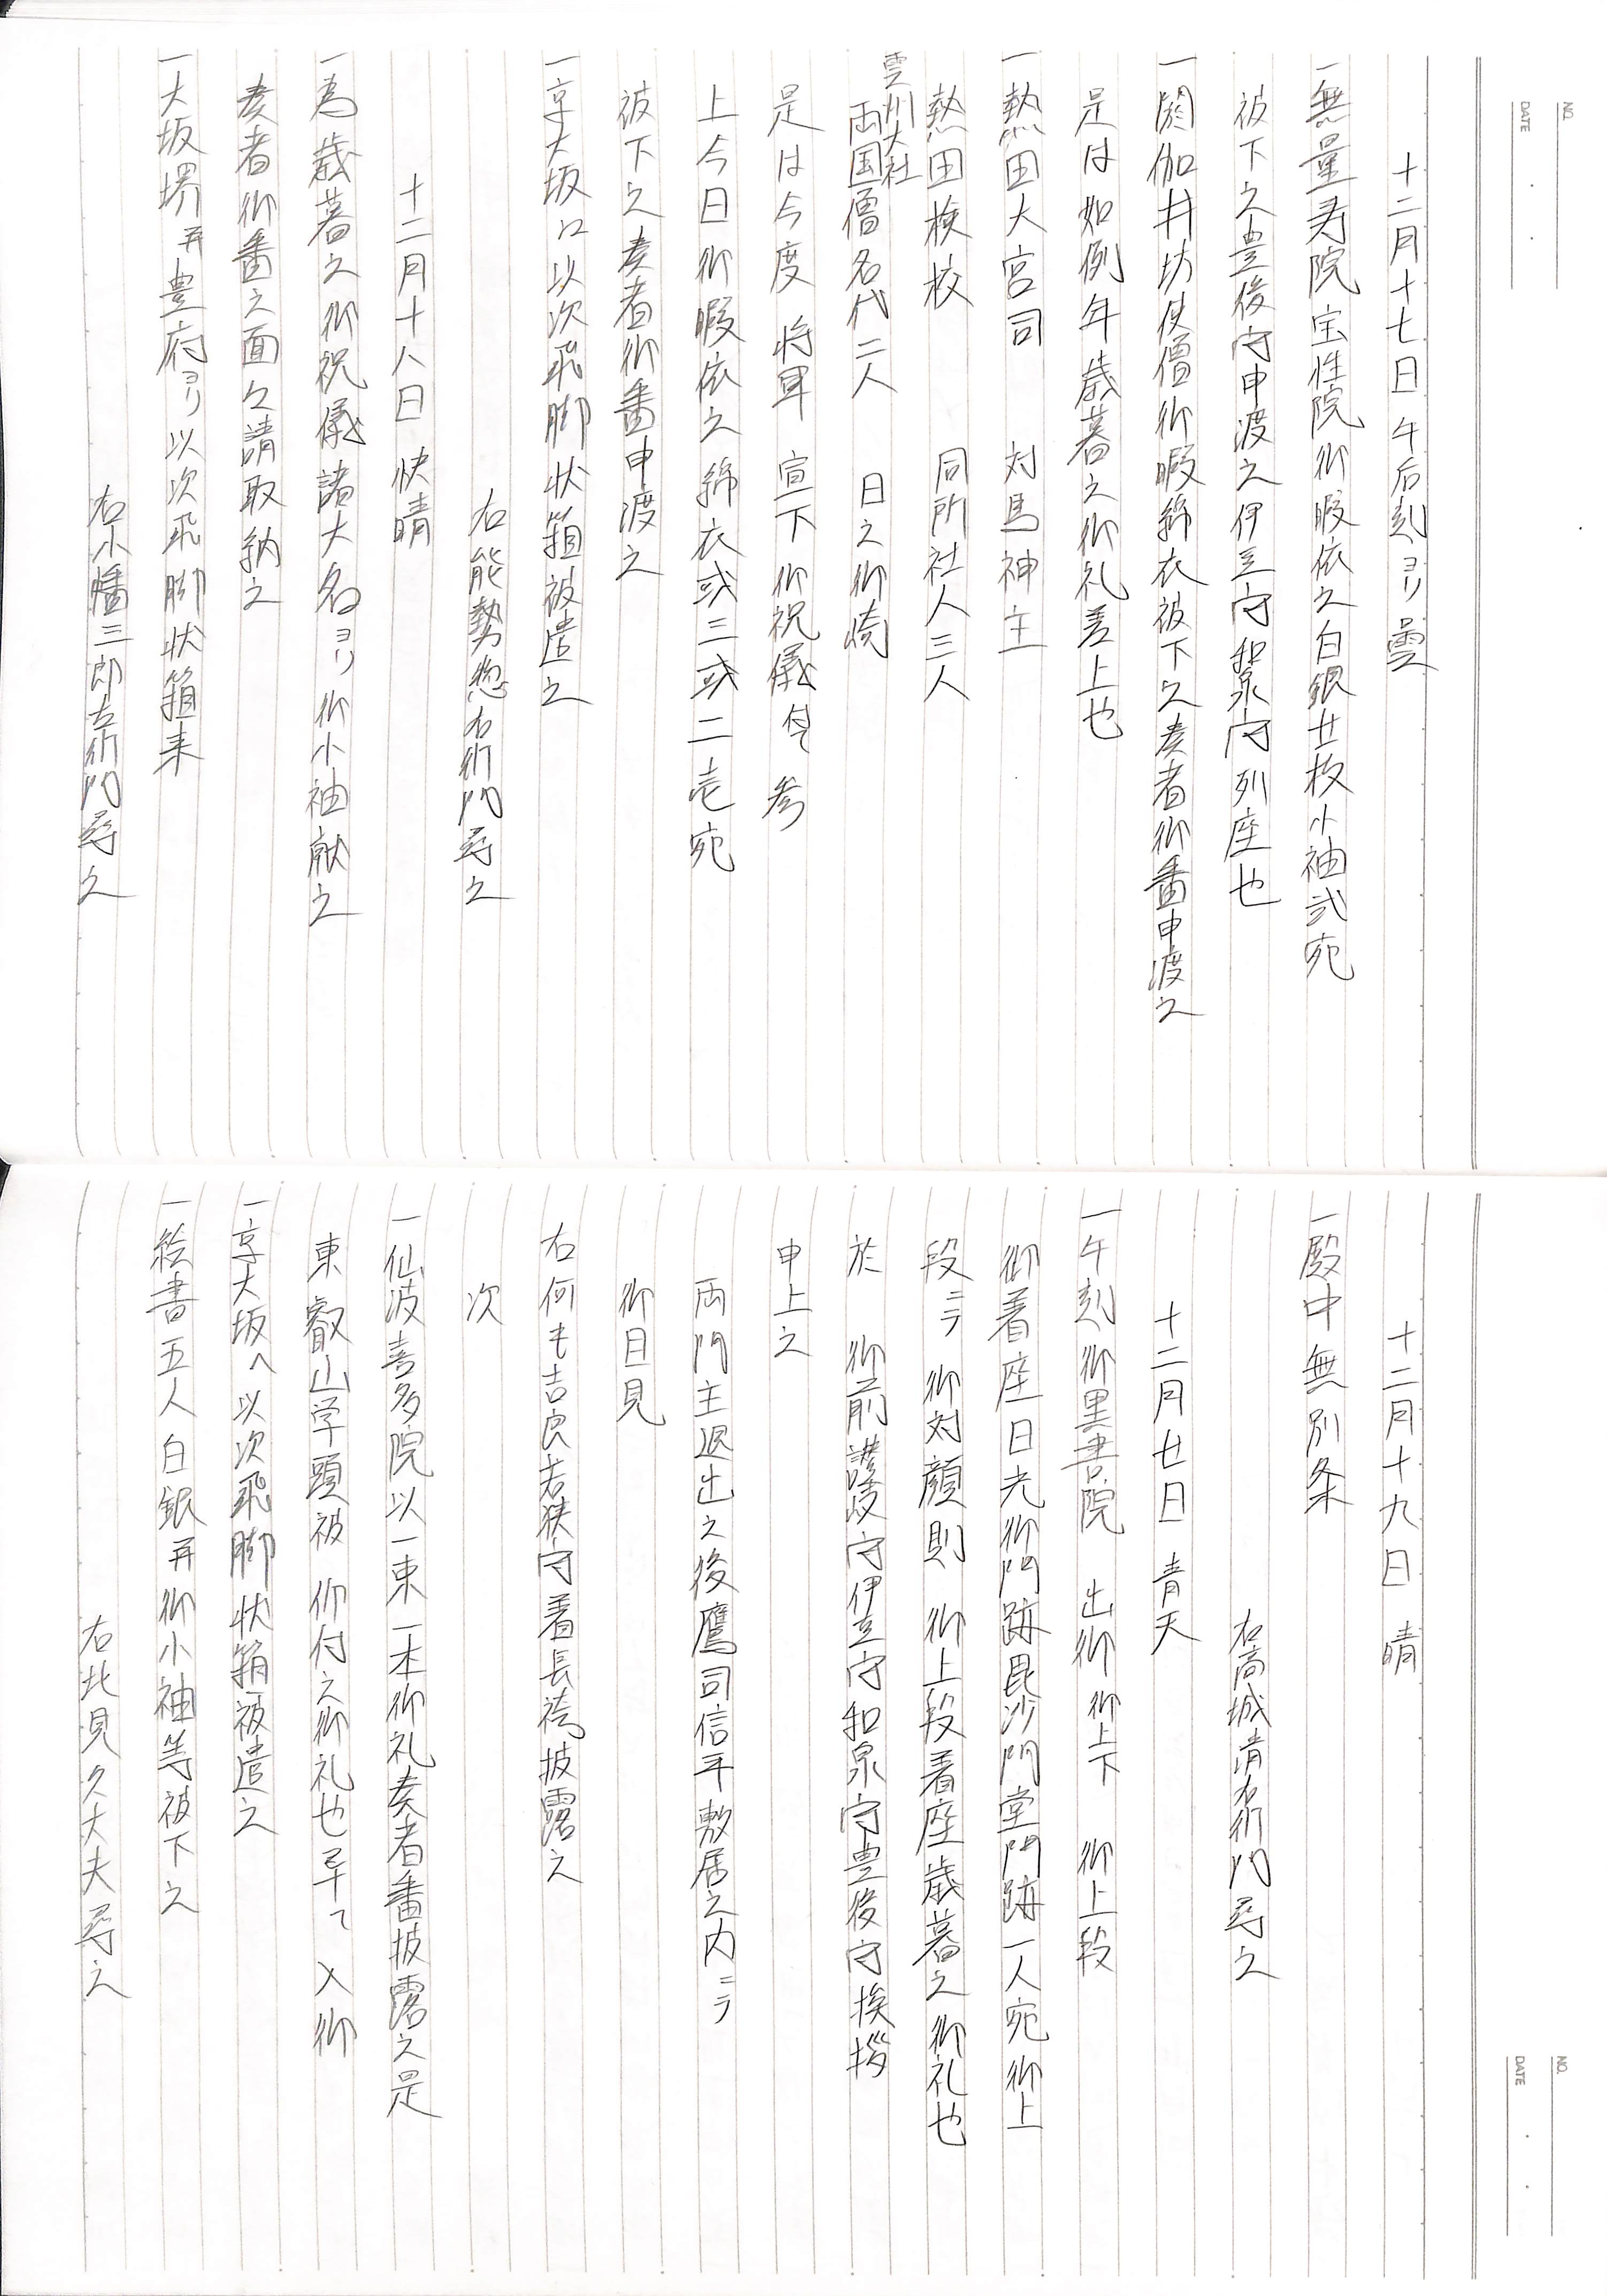 NO.
DATE
十二月十七日 午后刻ヨリ曇
一無量寿院宝性院御暇依之白銀廿枚小袖弐宛
被下之豊後守申渡之伊豆守和泉守列座也
一閼伽井坊使僧御暇綿衣被下之奏者御番申渡之
是は如例年歳暮之御礼差上也
一熱田大宮司 対馬神主
熱田検校 同所社人三人
雲州大社
両国僧名代二人 日之御崎
是は今度 将軍 宣下御祝儀 参
上今日御暇依之綿衣或三或二壱宛
被下之奏者御番申渡之
一京大坂江以次飛脚状箱被遣之
右能勢惣右衛門尋之
十二月十八日 快晴
一為歳暮之御祝儀諸大名ヨリ御小袖献之
奏者御番之面々請取納之
一大坂堺并豊府ヨリ以次飛脚状箱来
右小幡三郎左衛門尋之
NO.
DATE
十二月十九日 晴
一殿中無別条
右高城清右衛門尋之
十二月廿日 青天
一午刻御黒書院 出御 御上下 御上段
御着座日光御門跡毘沙門堂門跡一人宛御上
段ニテ 御対顔則 御上段着座歳暮之御礼也
於 御前讃岐守伊豆守和泉守豊後守挨拶
申上之
両門主退出之後鷹司信平敷居之内ニテ
御目見
右何も吉良若狭守着長袴披露之
次
一仙波喜多院以一束一本御礼奏者番披露之是
東叡山学頭被 仰付之御礼也畢て 入御
一京大坂へ以次飛脚状箱被遣之
一絵書五人白銀并御小袖等被下之
右北見久大夫尋之